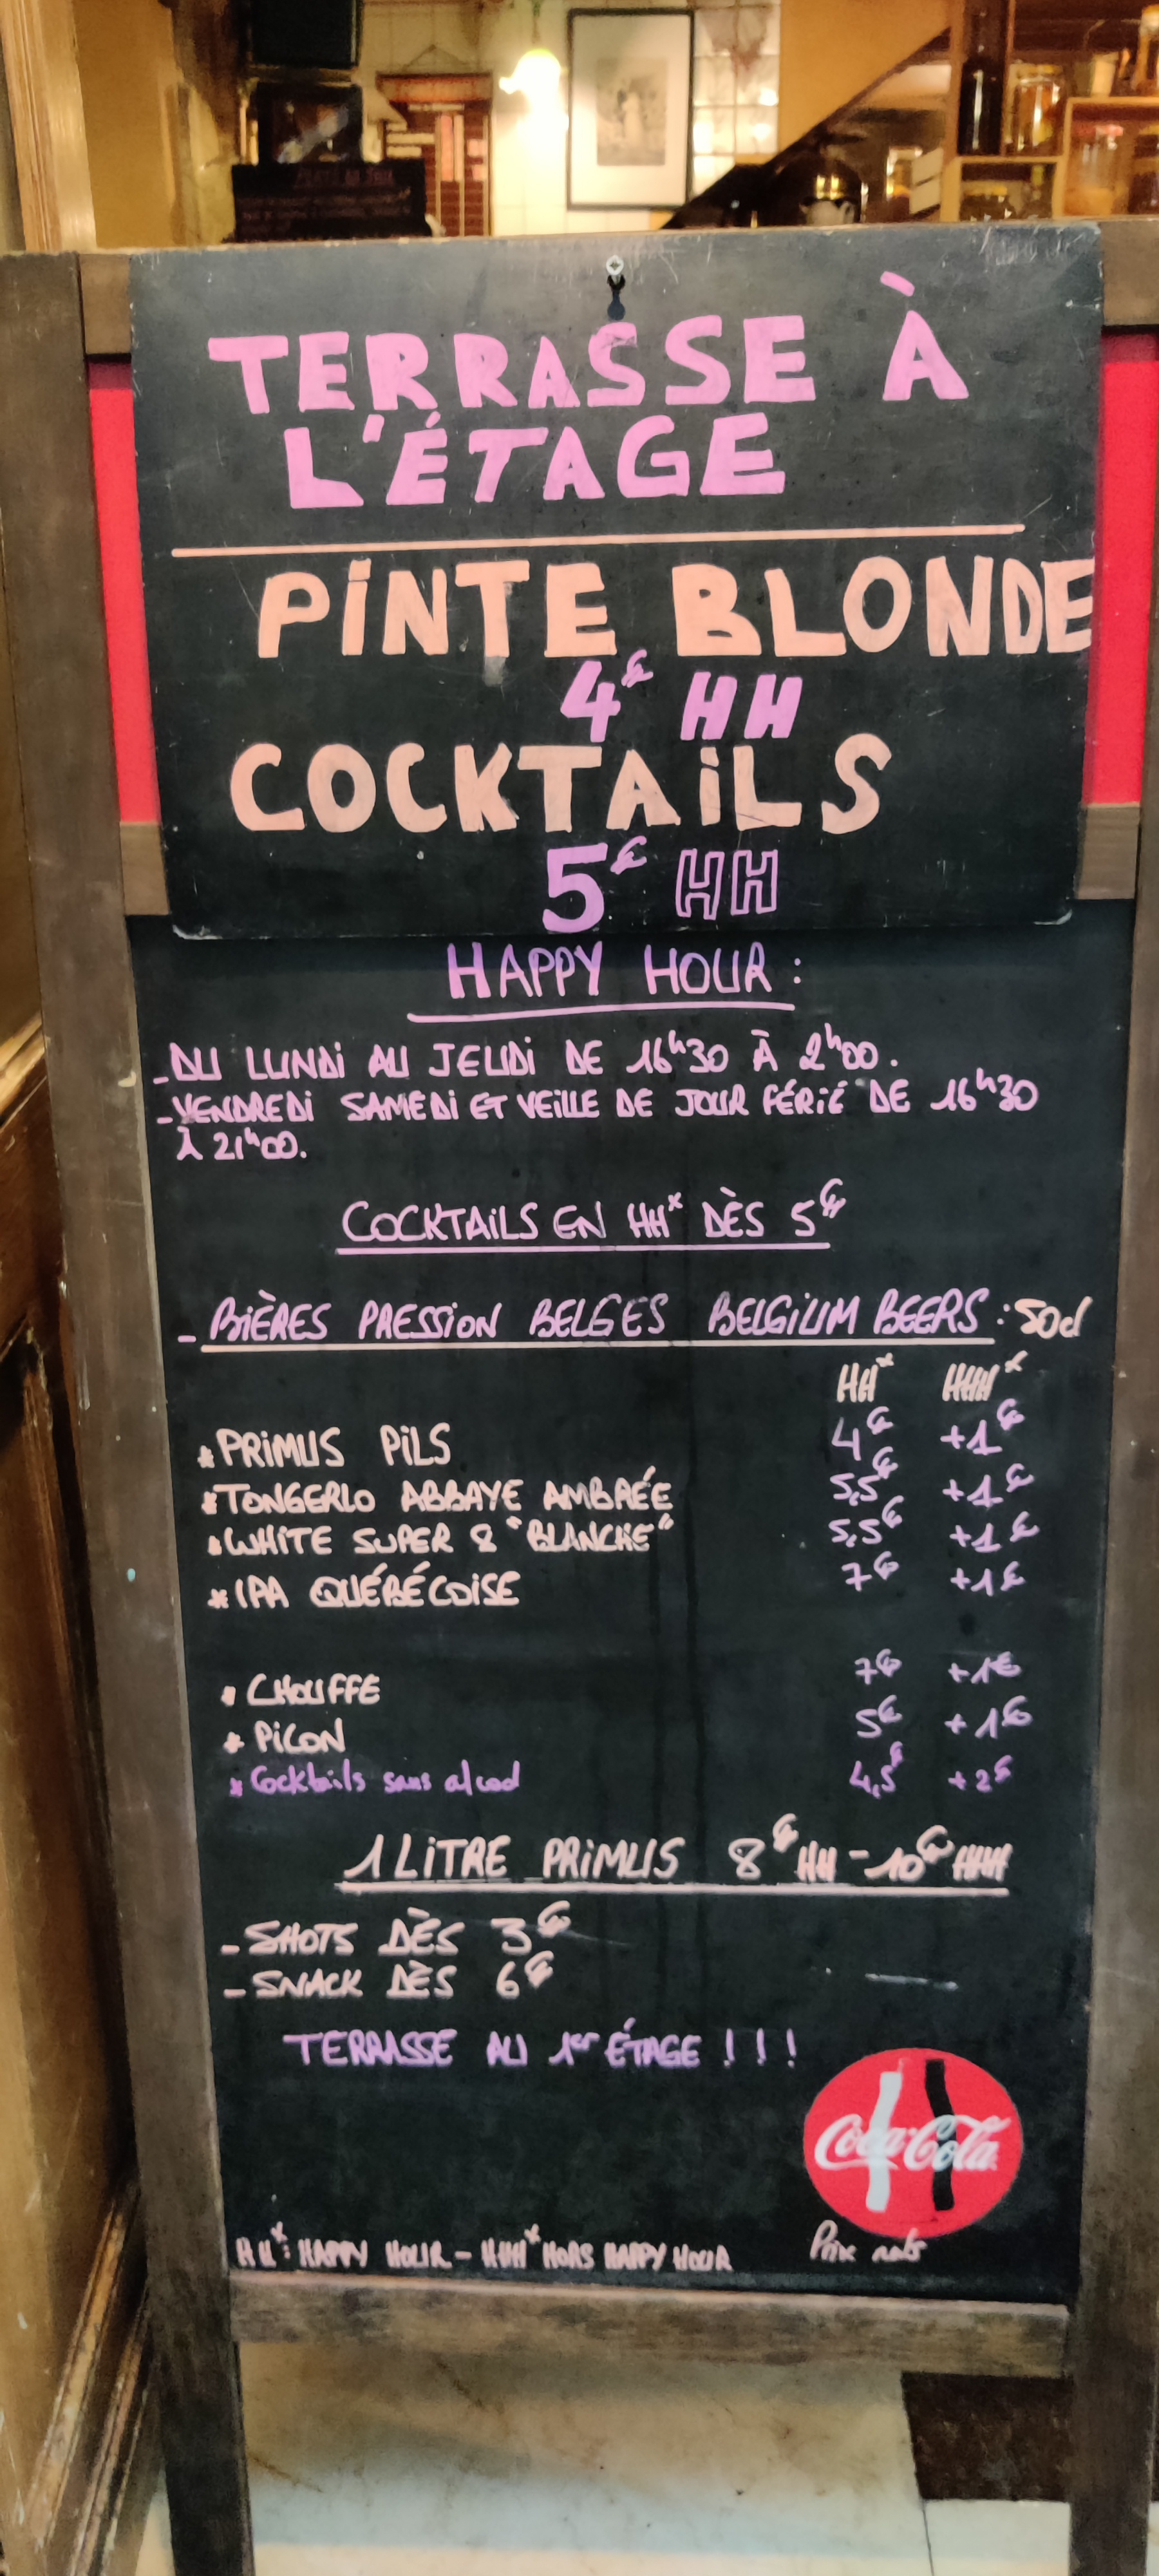 TERRASSE À
L'ÉTAGE
PINTE BLONDE
4€ HH
COCKTAILS
5€ HH
HAPPY HOUR :
- DU LUNDI AU JEUDI DE 16h30 À 2h00.
- VENDREDI SAMEDI ET VEILLE DE JOUR FÉRIÉ DE 16h30
À 21h00.
COCKTAILS EN HH* DÈS 5€
- BIÈRES PRESSION BELGES BELGIUM BEERS : 50cl
HH* HHH*
* PRIMUS PILS 4€ +1€
* TONGERLO ABBAYE AMBRÉE 5,5€ +1€
* WHITE SUPER 8 "BLANCHE" 5,5€ +1€
* IPA QUÉBÉCOISE 7€ +1€
* CHOUFFE 7€ +1€
* PICON 5€ +1€
* Cocktails sans alcool 4,5€ +2€
1 LITRE PRIMUS 8€ HH - 10€ HHH
- SHOTS DÈS 3€
- SNACK DÈS 6€
TERRASSE AU 1er ÉTAGE ! ! !
Coca-Cola
HH* : HAPPY HOUR - HHH* HORS HAPPY HOUR
Prix nets